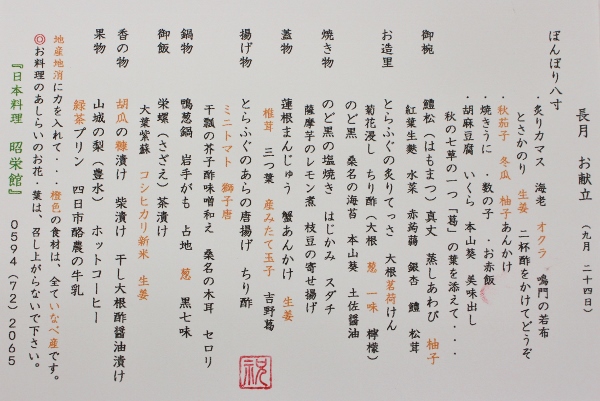 長月 お献立 (九月 二十四日)
ぼんぼり八寸
・炙りカマス 海老 オクラ 鳴門の若布
とさかのり 生姜 二杯酢をかけてどうぞ
・秋茄子 冬瓜 柚子あんかけ
・焼きうに ・数の子 ・お赤飯
・胡麻豆腐 いくら 本山葵 美味出し
秋の七草の一つ「葛」の葉を添えて・・・
御椀 鱧松(はもまつ)真丈 蒸しあわび 柚子
紅葉生麩 水菜 赤蒟蒻 銀杏 鱧 松茸
お造里 とらふぐの炙りてっさ 大根茗荷けん
菊花浸し ちり酢(大根 葱 一味 檸檬)
のど黒 桑名の海苔 本山葵 土佐醤油
焼き物 のど黒の塩焼き はじかみ スダチ
薩摩芋のレモン煮 枝豆の寄せ揚げ
蓋物 蓮根まんじゅう 蟹あんかけ 生姜
椎茸 三つ葉 産みたて玉子 吉野葛
揚げ物 とらふぐのあらの唐揚げ ちり酢
ミニトマト 獅子唐
干瓢の芥子酢味噌和え 桑名の木耳 セロリ
鍋物 鴨葱鍋 岩手がも 占地 葱 黒七味
御飯 栄螺(さざえ)茶漬け
大葉紫蘇 コシヒカリ新米 生姜
香の物 胡瓜の糠漬け 柴漬け 干し大根酢醤油漬け
果物 山城の梨(豊水) ホットコーヒー
緑茶プリン 四日市酪農の牛乳
地産地消に力を入れて・・・橙色の食材は、全ていなべ産です。
◎お料理のあしらいのお花・葉は、召し上がらないで下さい。
『日本料理 昭栄館』 0594(72)2065
祝